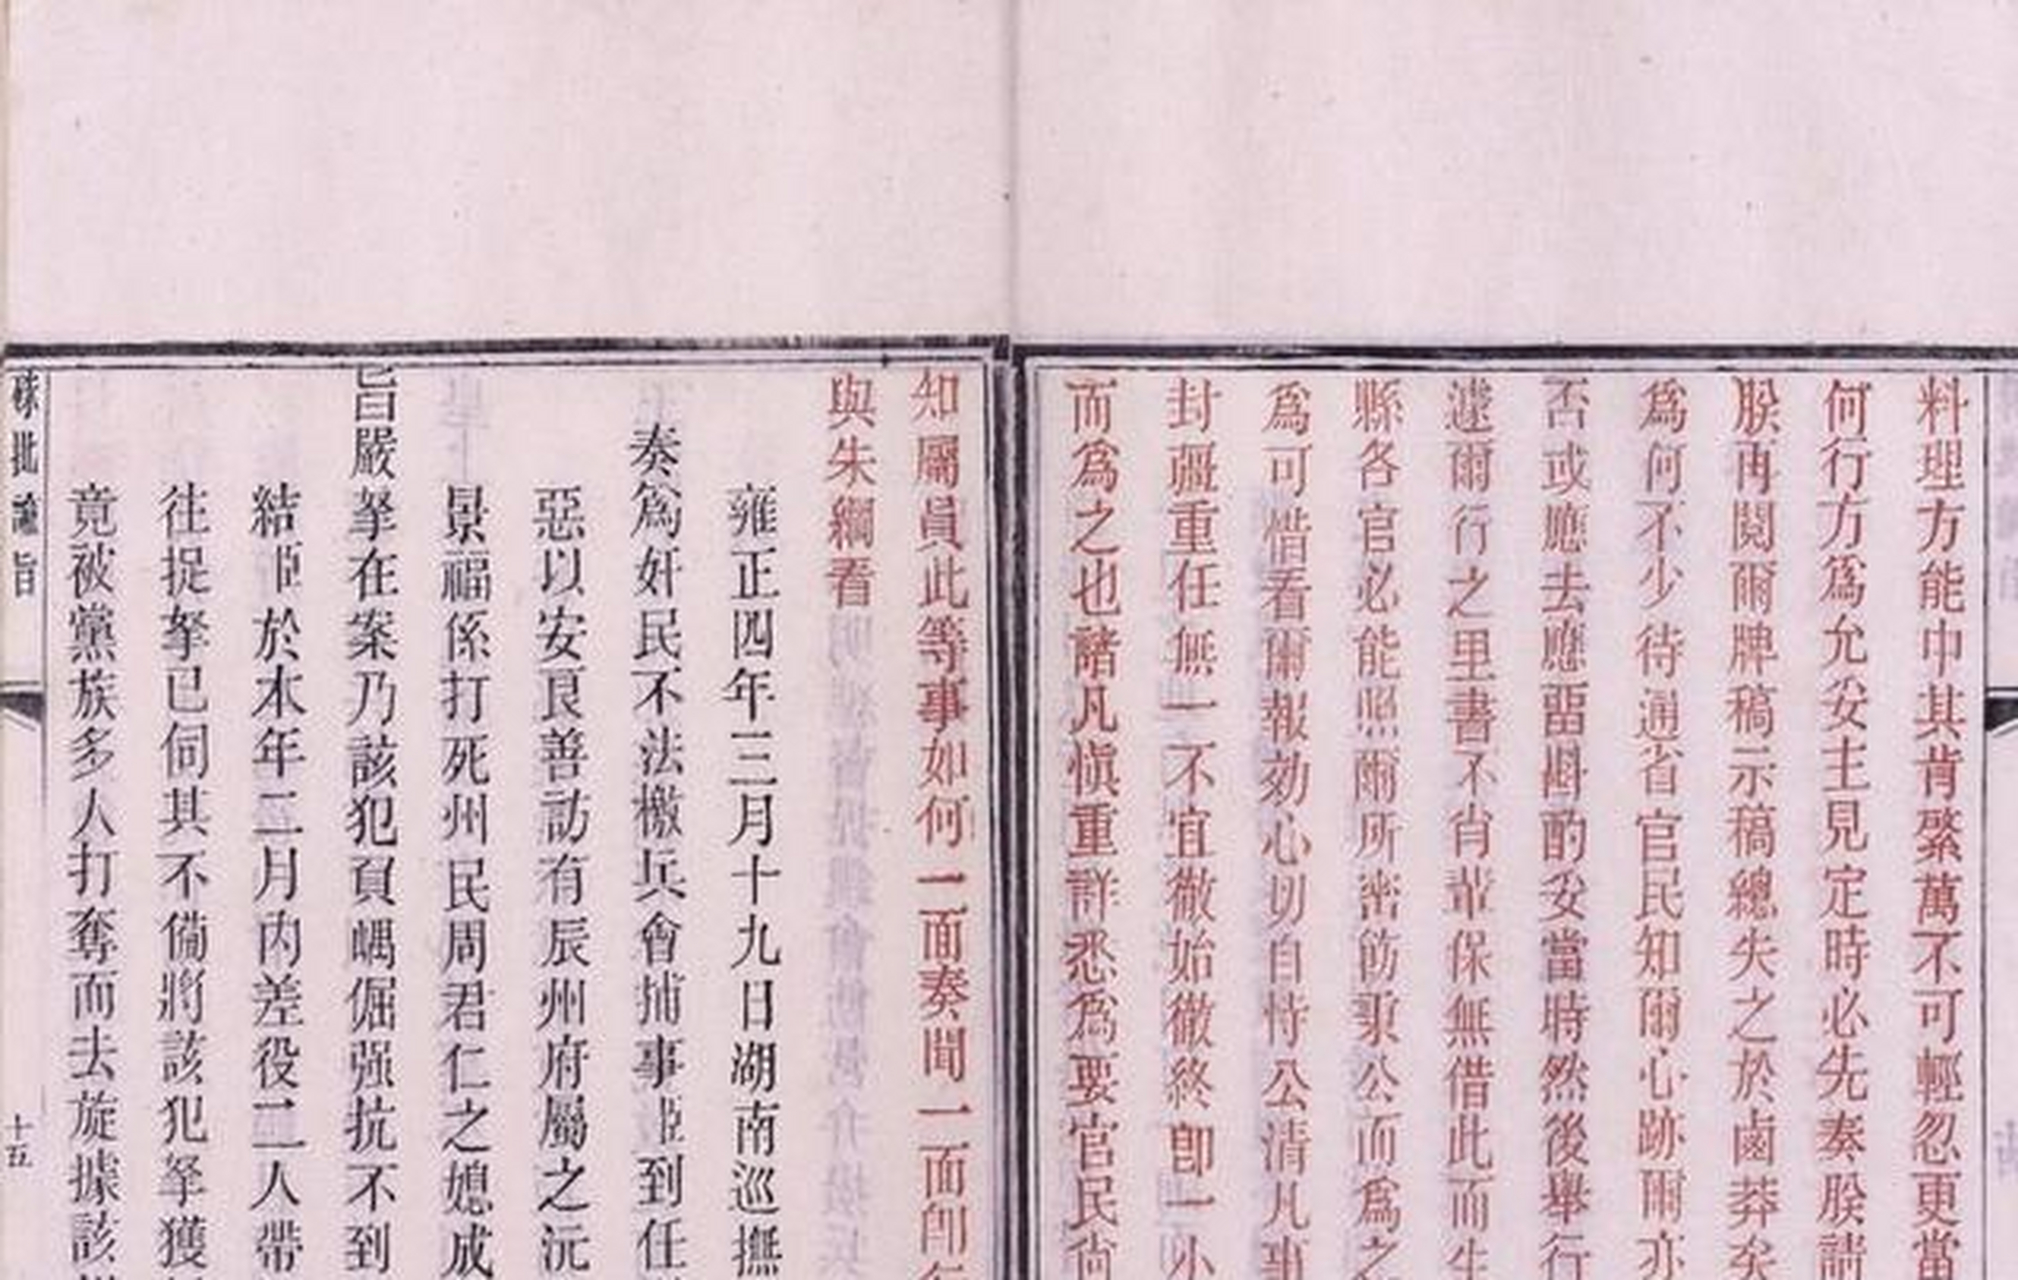 料理方能中其肯綮萬不可輕忽更當
何行方爲允妥主見定時必先奏朕請
朕再閱爾牌稿示稿總失之於鹵莽矣
爲何不少待通省官民知爾心跡爾亦
否或應去應留斟酌妥當時然後舉行
遽爾行之里書不肖輩保無借此而生
縣各官必能照爾所密飭秉公而爲之
爲可惜看爾報効心切自恃公清凡事
封疆重任無一不宜徹始徹終卽一小
而爲之也諸凡愼重詳悉爲要官民尙
知屬員此等事如何一面奏聞一面卽行
與朱綱看
雍正四年三月十九日湖南巡撫
奏爲奸民不法檄兵會捕事臣到任
惡以安良善訪有辰州府屬之沅
景福係打死州民周君仁之媳成
旨嚴拏在案乃該犯負嵎倔强抗不到
結臣於本年二月內差役二人帶
往捉拏已伺其不備將該犯拏獲
竟被黨族多人打奪而去旋據該
硃批諭旨
十五